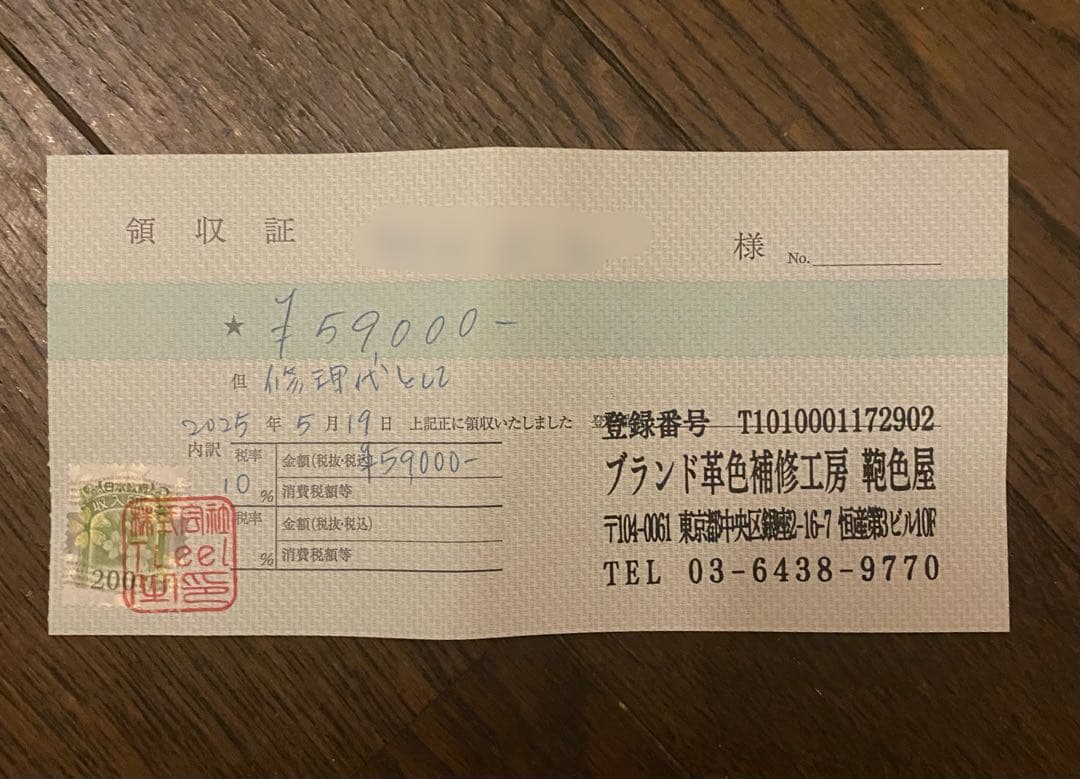 領収証 様 No.
★ ¥59000-
但 修理代として
2025年5月19日 上記正に領収いたしました
登録番号 T1010001172902
内訳 税率 金額(税抜・税込) ¥59000-
10% 消費税額等
税率 金額(税抜・税込)
% 消費税額等
ブランド革色補修工房 鞄色屋
〒104-0061 東京都中央区銀座2-16-7 恒産第3ビル10F
TEL 03-6438-9770
200
株式会社